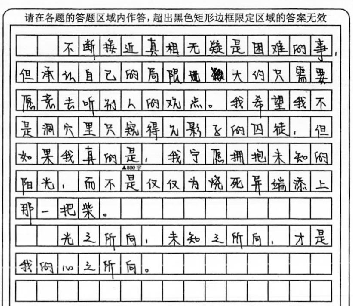 请在各题的答题区域内作答，超出黑色矩形边框限定区域的答案无效
不断接近真相无疑是困难的事，
但承认自己的局限大约只需要
愿意去听别人的观点。我希望我不
是洞穴里只窥得光影的囚徒，但
如果我真的是，我宁愿拥抱未知的
阳光，而不是仅仅为烧死异端添上
那一把柴。
光之所向，未知之所向，才是
我的心之所向。